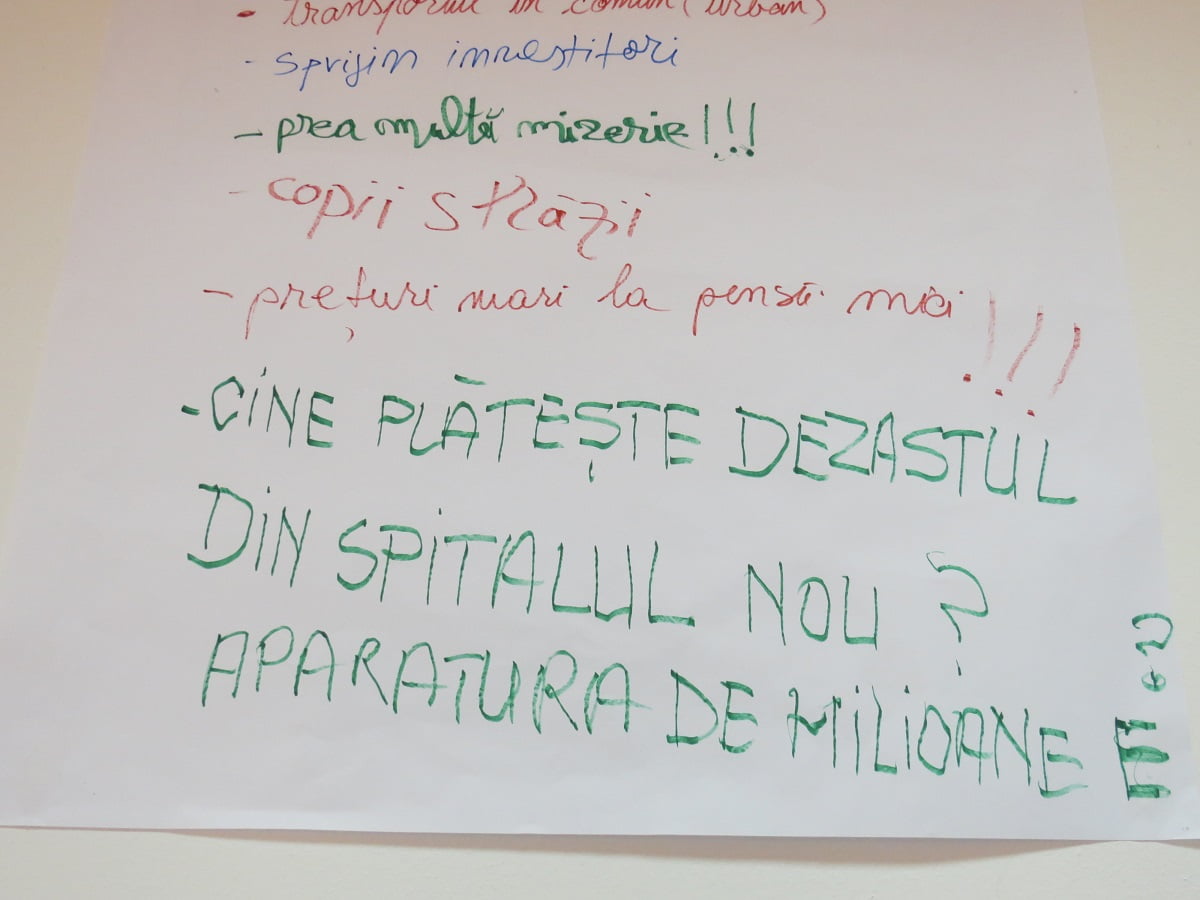 - transportul în comun (urban)
- sprijin investitori
- prea multă mizerie!!!
- copii străzii
- prețuri mari la pensii mici!!!
- CINE PLĂTEȘTE DEZASTUL
DIN SPITALUL NOU ?
APARATURA DE MILIOANE